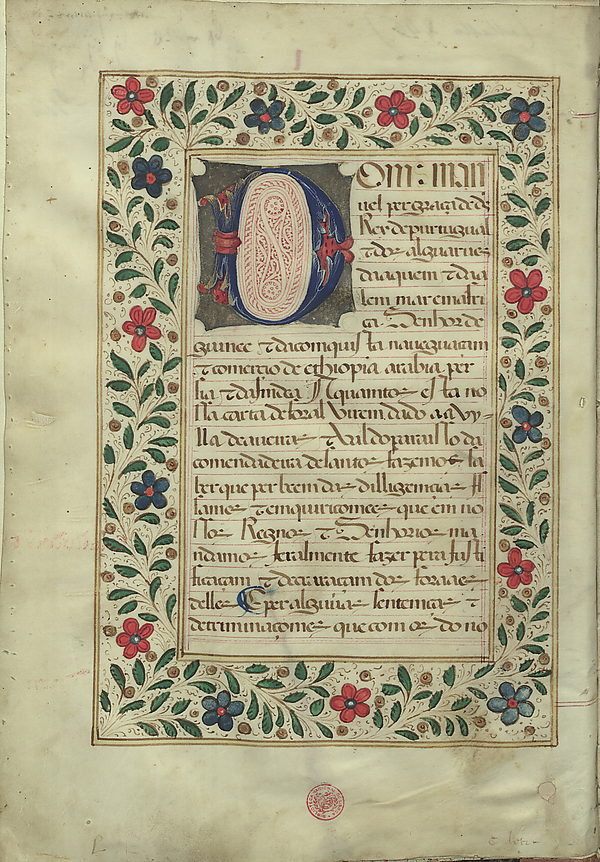 Dom: man
uel per graça de ds
Rey de purtugual
⁊ dos alguarues
daaquem ⁊ daa
lem mar em afri
ca. Senhor de
guinee ⁊ da comquista nauegaçam
⁊ comercio de ethiopia arabia per
sia ⁊ da Jndea A quamtos esta no
ssa carta de foral virem dado aa vy
lla daueiro ⁊ val do paraisso da
comendadeira de santos fazemos sa
ber que per beem das dilligençias
sames ⁊ emquiriçomees que em no
ssos Regnos ⁊ Senhorios ma
ndamos jeralmente fazer pera justi
ficaçam ⁊ decraraçam dos foraaes
delles E per alguũas sentemças ⁊
detriminaçomes que com os do no